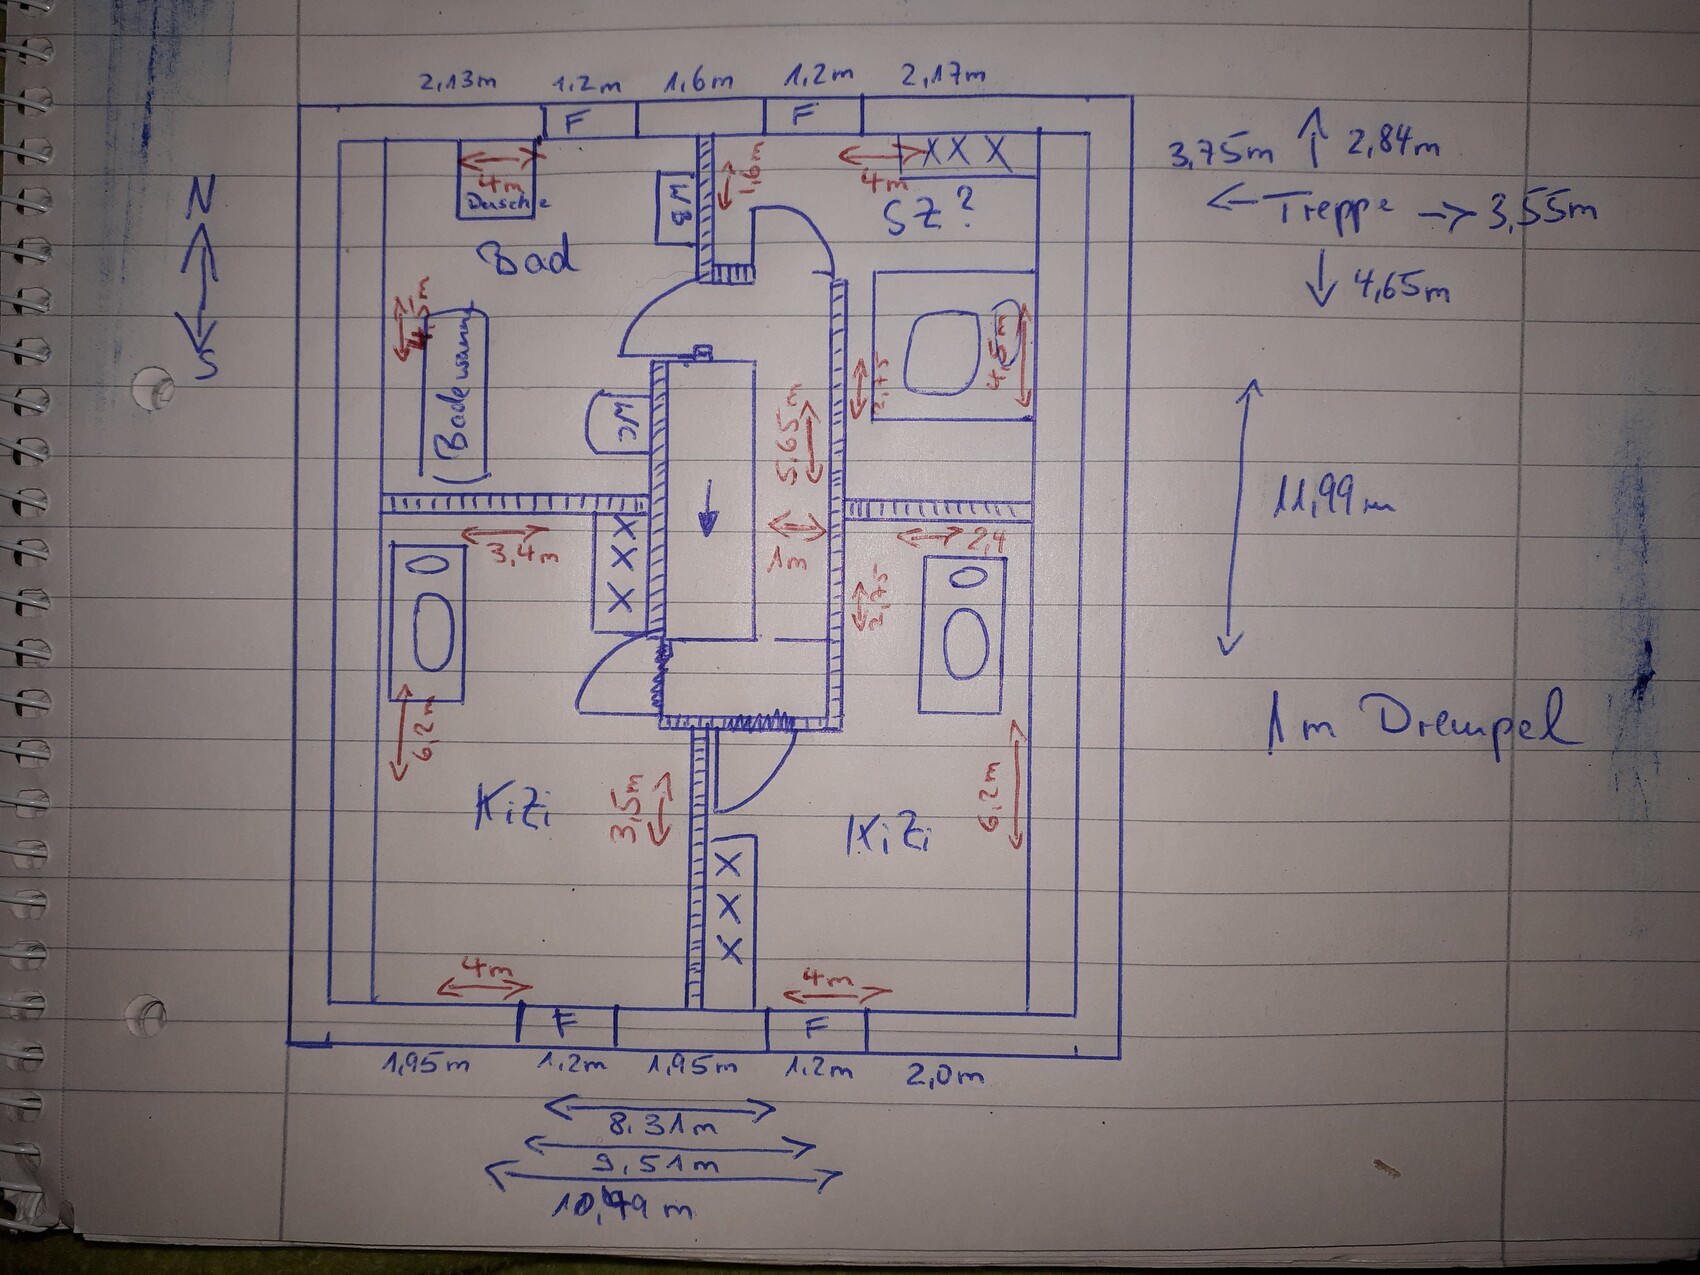 2,13m 1,2m 1,6m 1,2m 2,17m
F F
3,75m 2,84m
← Treppe → 3,55m
4,65m
N
S
4m
Dusche
WB
1,6m
4m
X X X
SZ?
Bad
4,5m
Badewanne
WC
5,65m
2,75
4,5m
11,99m
3,4m
X
X
X
1m
2,4
2,75
6,2m
1m Drempel
KiZi
3,5m
KiZi
6,2m
X
X
X
4m 4m
F F
1,95m 1,2m 1,95m 1,2m 2,0m
8,31m
9,51m